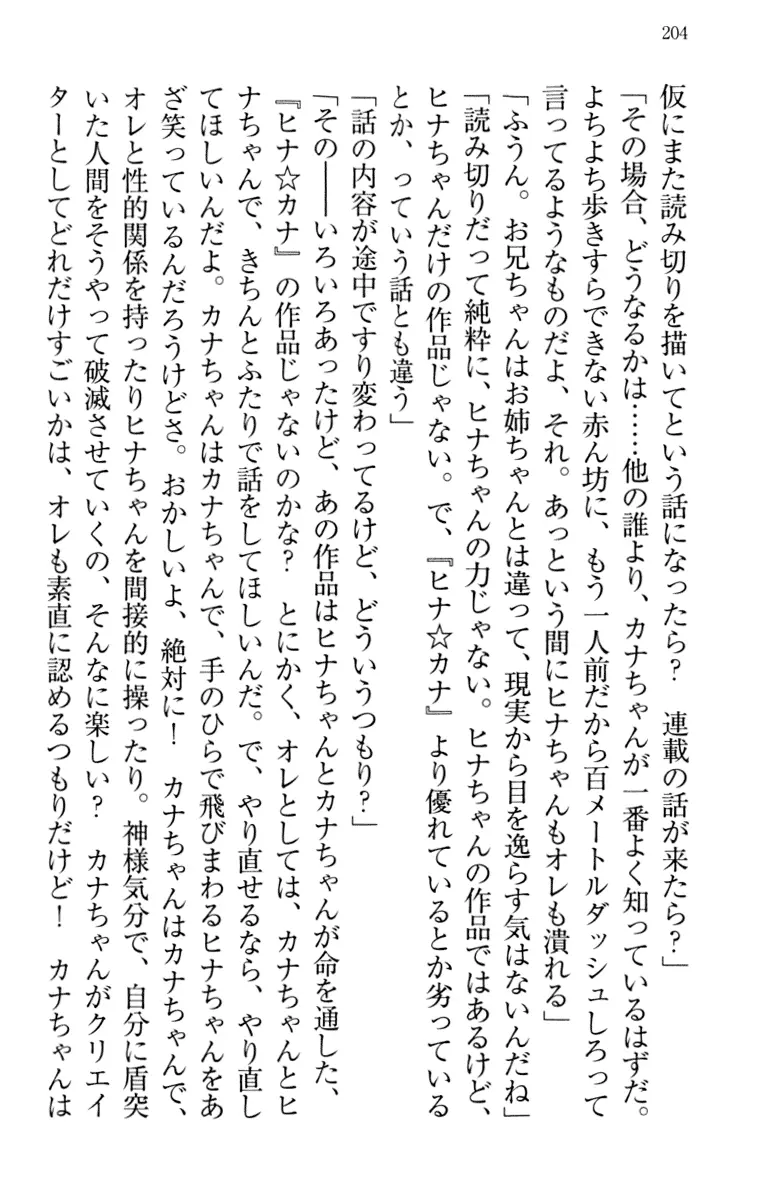 204
仮にまた読み切りを描いてという話になったら？　連載の話が来たら？」
「その場合、どうなるかは……他の誰より、カナちゃんが一番よく知っているはずだ。
よちよち歩きすらできない赤ん坊に、もう一人前だから百メートルダッシュしろって
言ってるようなものだよ、それ。あっという間にヒナちゃんもオレも潰れる」
「ふうん。お兄ちゃんはお姉ちゃんとは違って、現実から目を逸らす気はないんだね」
「読み切りだって純粋に、ヒナちゃんの力じゃない。ヒナちゃんの作品ではあるけど、
ヒナちゃんだけの作品じゃない。で、『ヒナ☆カナ』より優れているとか劣っている
とか、っていう話とも違う」
「話の内容が途中ですり変わってるけど、どういうつもり？」
「その――いろいろあったけど、あの作品はヒナちゃんとカナちゃんが命を通した、
『ヒナ☆カナ』の作品じゃないのかな？　とにかく、オレとしては、カナちゃんとヒ
ナちゃんで、きちんとふたりで話をしてほしいんだ。で、やり直せるなら、やり直し
てほしいんだよ。カナちゃんはカナちゃんで、手のひらで飛びまわるヒナちゃんをあ
ざ笑っているんだろうけどさ。おかしいよ、絶対に！　カナちゃんはカナちゃんで、
オレと性的関係を持ったりヒナちゃんを間接的に操ったり。神様気分で、自分に盾突
いた人間をそうやって破滅させていくの、そんなに楽しい？　カナちゃんがクリエイ
ターとしてどれだけすごいかは、オレも素直に認めるつもりだけど！　カナちゃんは